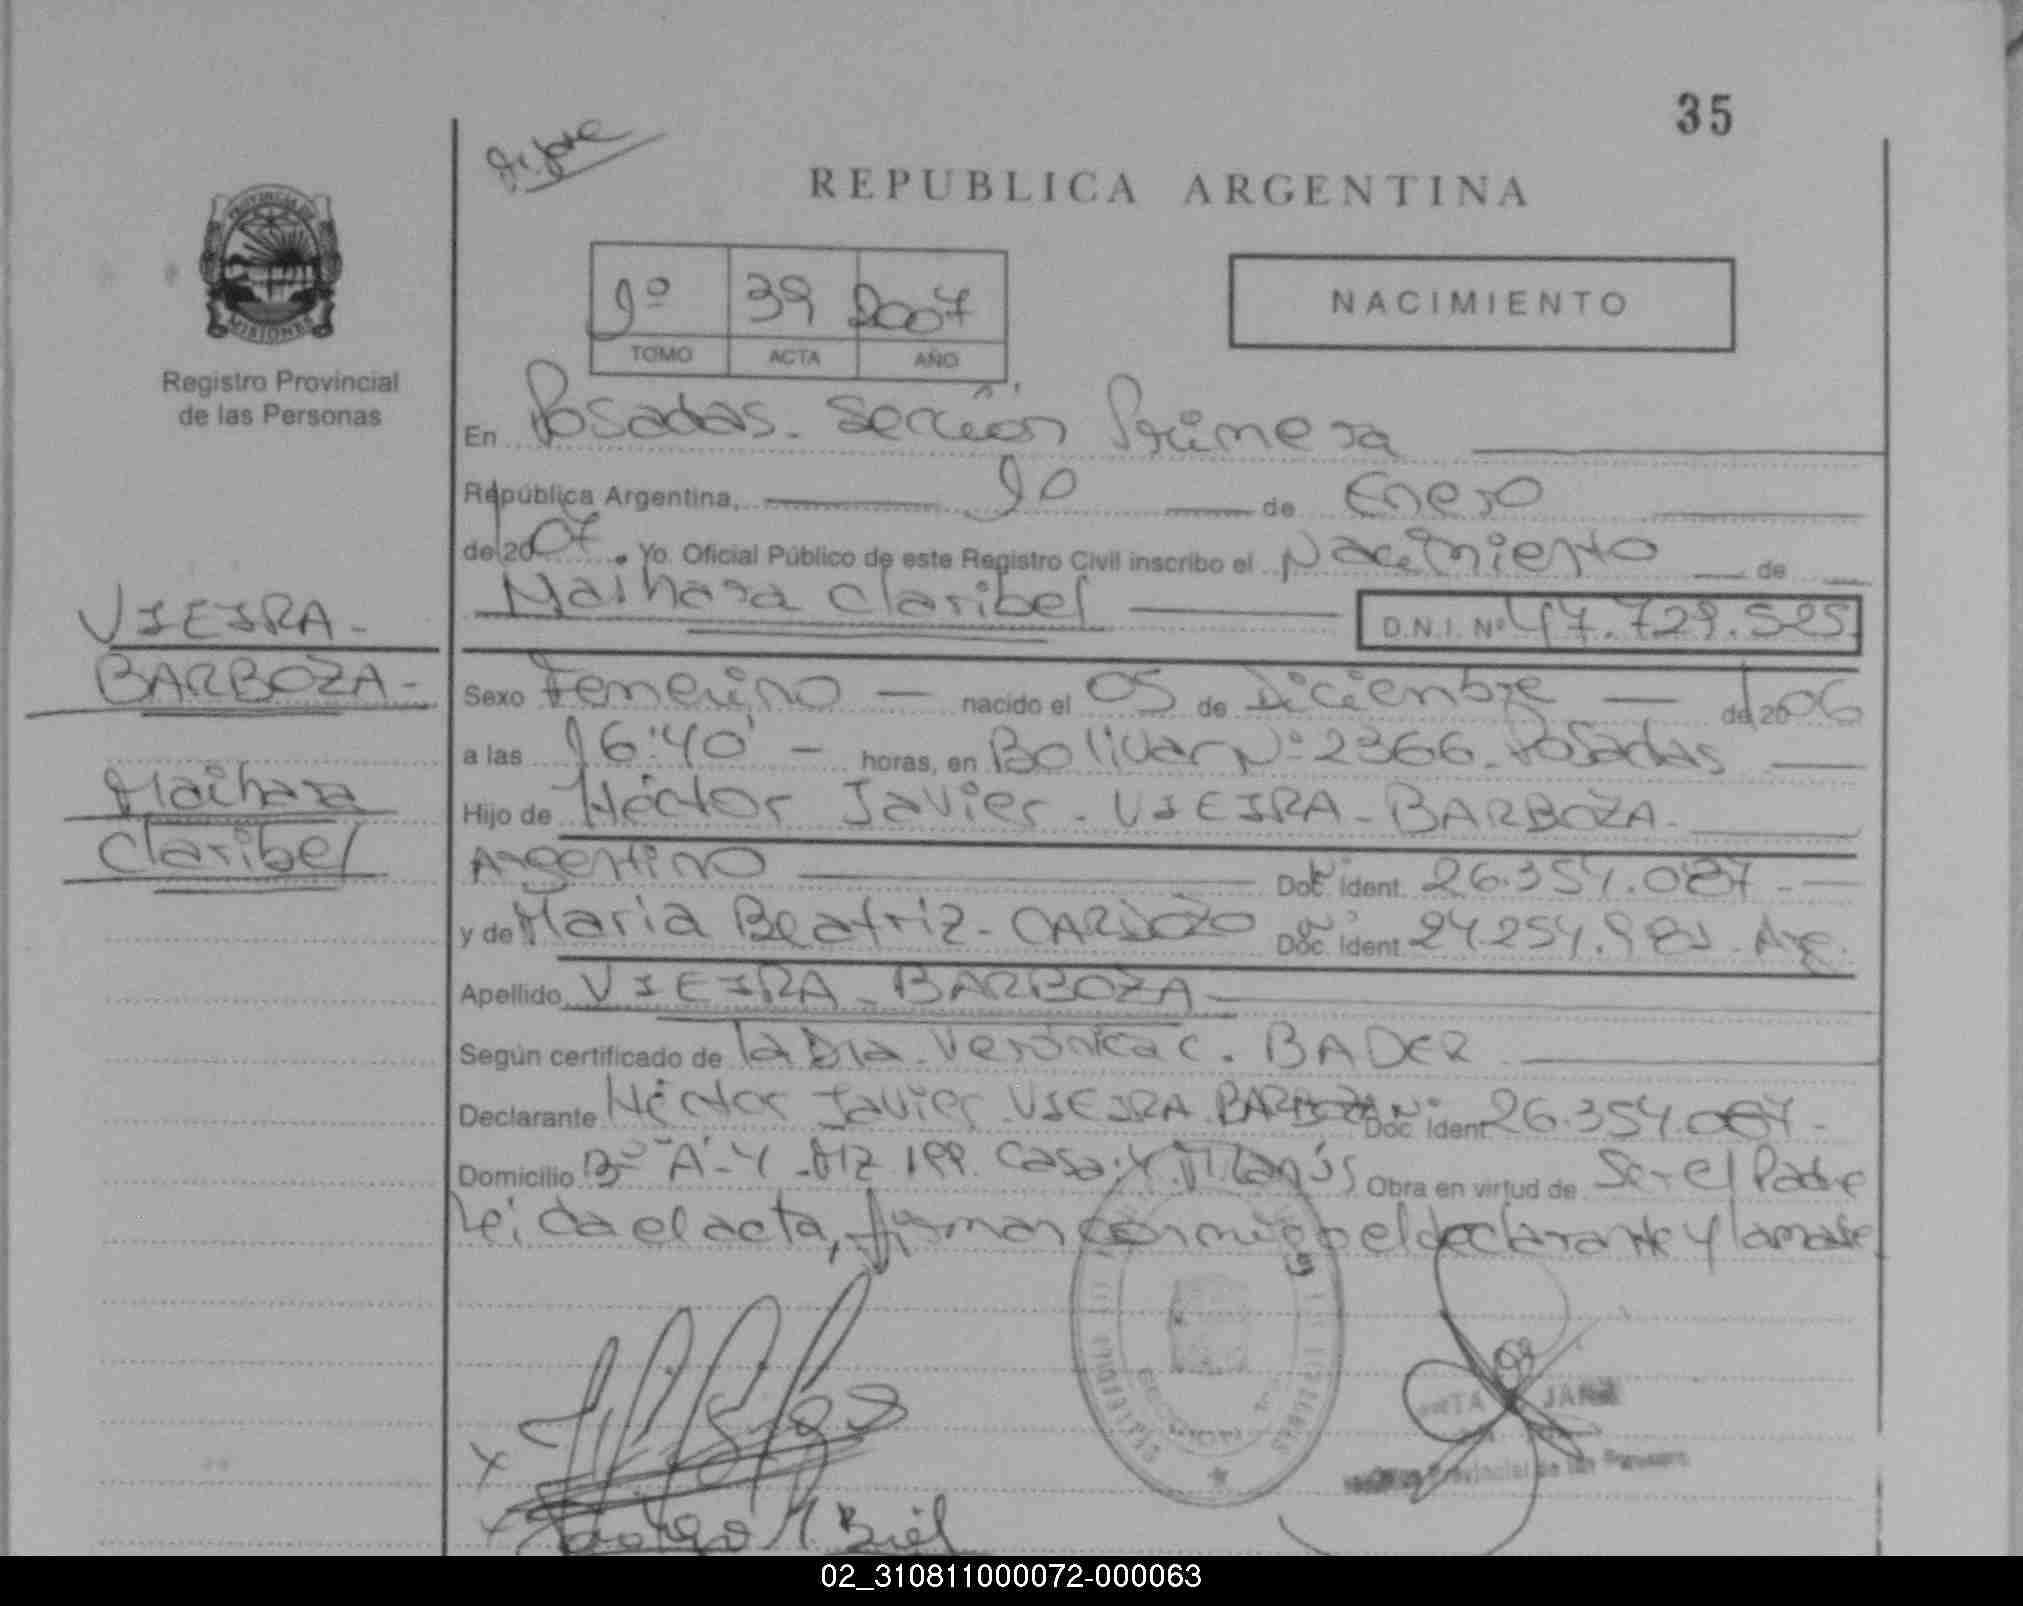 35
REPUBLICA ARGENTINA
PROVINCIA DE
MISIONES
Registro Provincial
de las Personas
1º 39 2007
TOMO ACTA AÑO
NACIMIENTO
En Posadas - Sección Primera
República Argentina, 10 de Enero
de 2007. Yo. Oficial Público de este Registro Civil inscribo el Nacimiento de
Maihara Claribel D.N.I. Nº 47.729.525
VIEIRA -
BARBOZA -
Maihara
Claribel
Sexo Femenino - nacido el 05 de Diciembre - de 2006
a las 16:40' - horas, en Bolivar Nº 2366 - Posadas
Hijo de Héctor Javier - VIEIRA - BARBOZA -
Argentino Doc. Ident. 26.354.087 -
y de Maria Beatriz - CARDOZO Doc. Ident. 24.254.981 - Arg.
Apellido VIEIRA - BARBOZA -
Según certificado de la Dra. Verónica C. BADER
Declarante Héctor Javier VIEIRA BARBOZA Doc. Ident 26.354.087 -
Domicilio Bº "A-4 - MZ 199 Casa: 4 Obra en virtud de Ser el Padre
Leida el acta, firman conmigo el declarante y la madre
SECCION 1ª
Provincial de las Personas
02_310811000072-000063